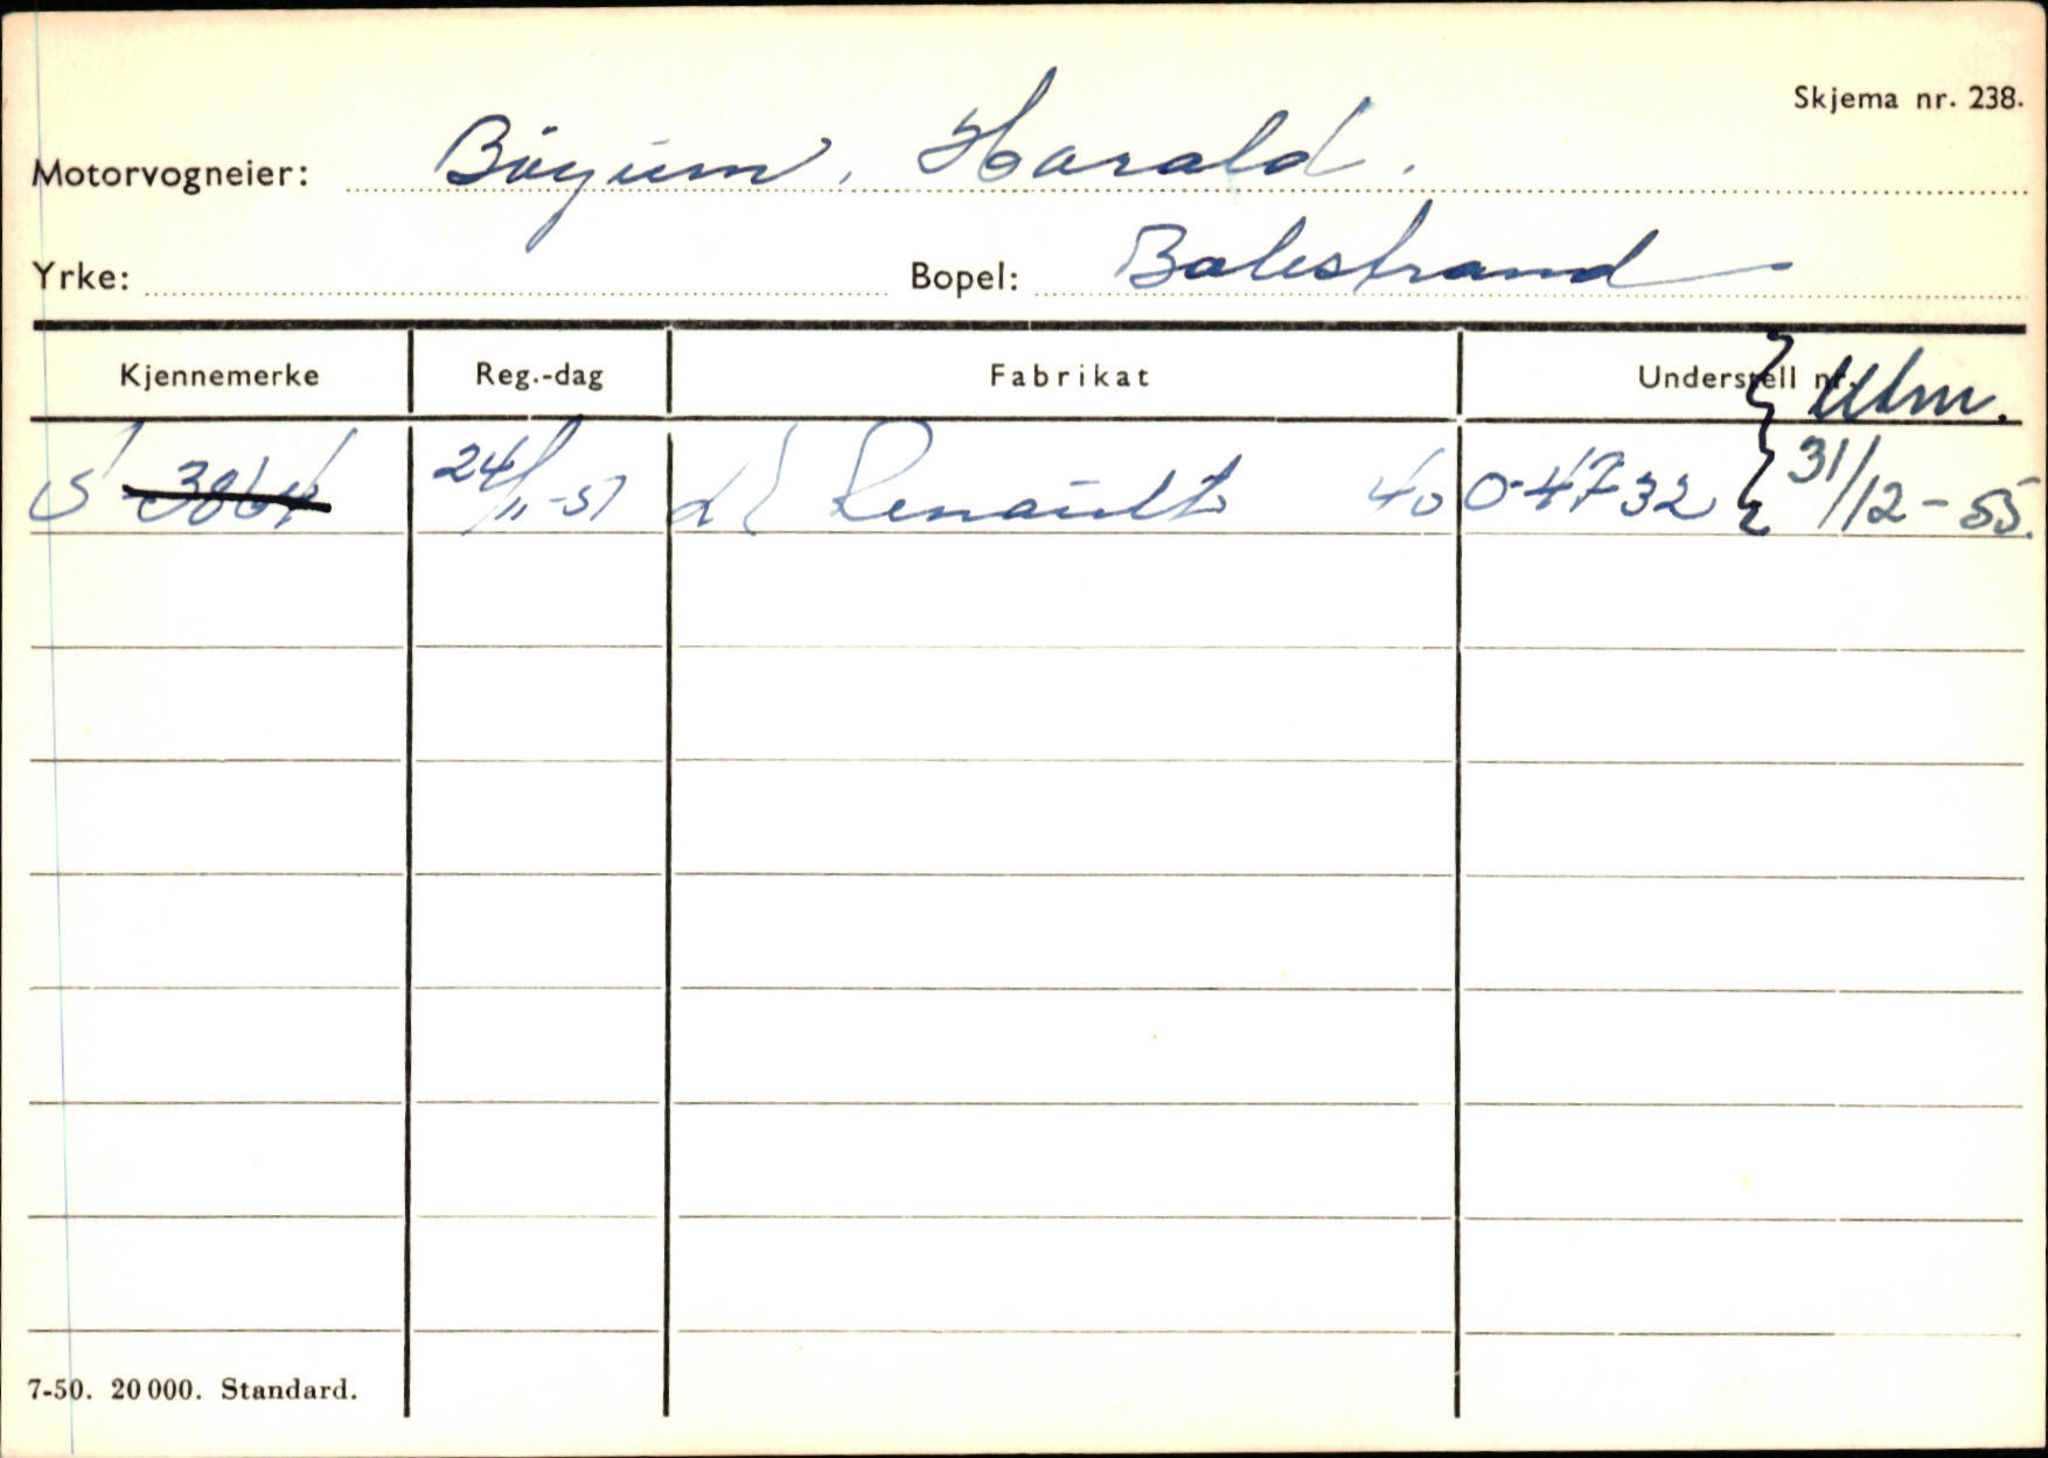 Skjema nr. 238.
Motorvogneier: Böyum, Harald.
Yrke: Bopel: Balestrand
Kjennemerke Reg.-dag Fabrikat Understell nr. Utm.
S 3864 24/11-51 L Renault 40 0-4732 31/12-55.
7-50. 20 000. Standard.